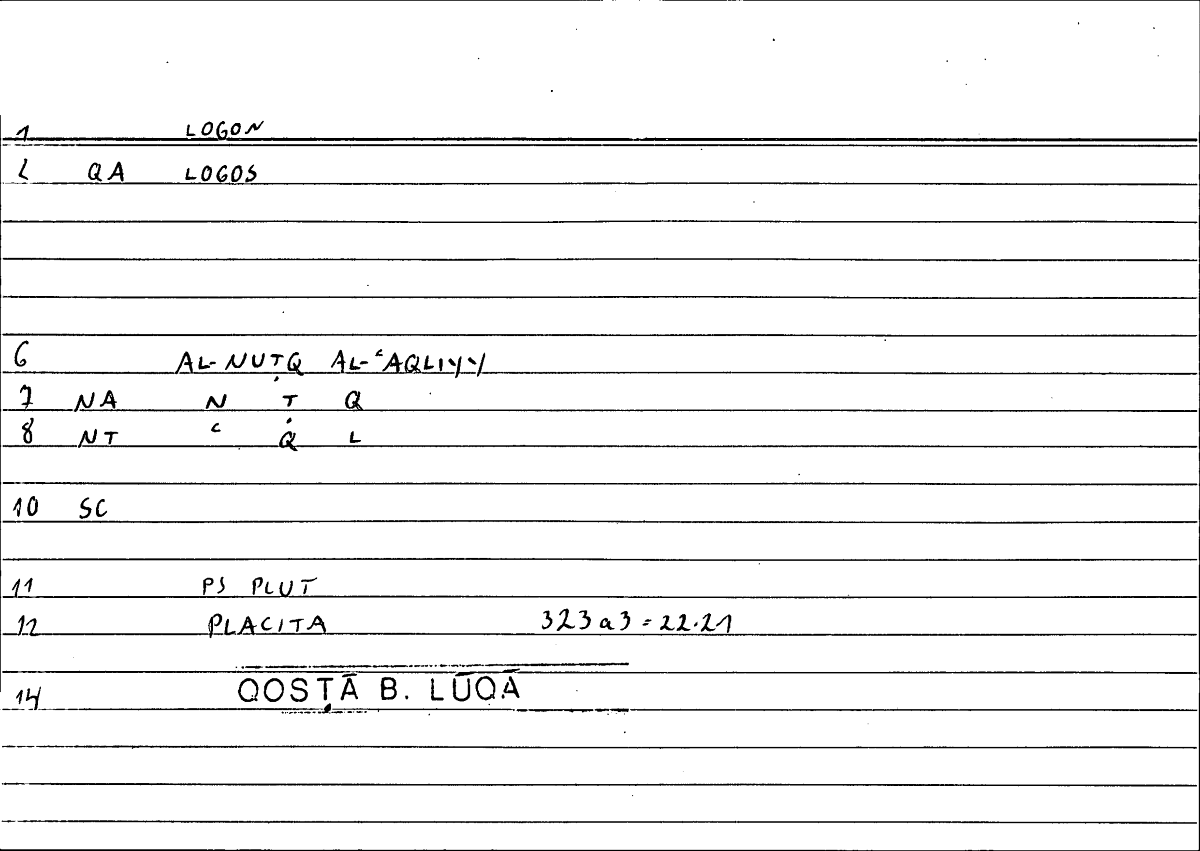 1 LOGON
2 QA LOGOS
6 AL-NUṬQ AL-ʿAQLIYY
7 NA N Ṭ Q
8 NT ʿ Q L
10 SC
11 PS PLUT
12 PLACITA 323a3 = 22.21
14 QOSṬĀ B. LŪQĀ